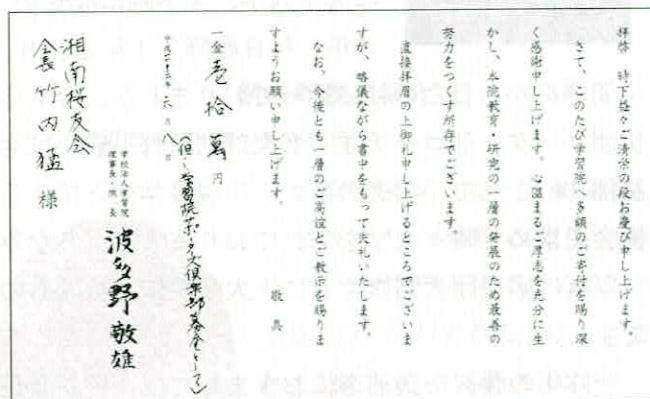 拝啓　時下益々ご清栄の段お慶び申し上げます。
さて、このたび学習院へ多額のご寄付を賜り深
く感謝申し上げます。心温まるご厚志を充分に生
かし、本院教育・研究の一層の発展のため最善の
努力をつくす所存でございます。
直接拝眉の上御礼申し上げるところでございま
すが、略儀ながら書中をもって失礼いたします。
なお、今後とも一層のご高説とご教示を賜りま
すようお願い申し上げます。
敬具
一金 壱拾萬 円
（但し学習院 基金として）
平成二十 年六月 日
学校法人学習院
院長
波多野敬雄
湘南桜友会
会長 竹内猛 様